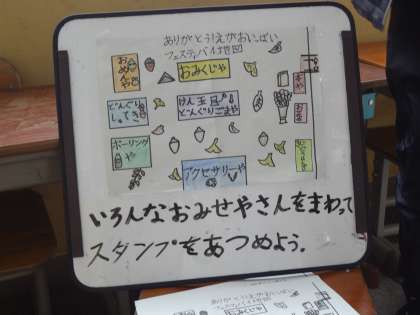 ありがとうえがおいっぱい
フェスティバル地図
おめんや
おみくじや
本や
どんぐり
しゃてき
けん玉
どんぐりごまや
お花
ボーリング
や
アクセサリーや
いろんなおみせやさんをまわって
スタンプをあつめよう。